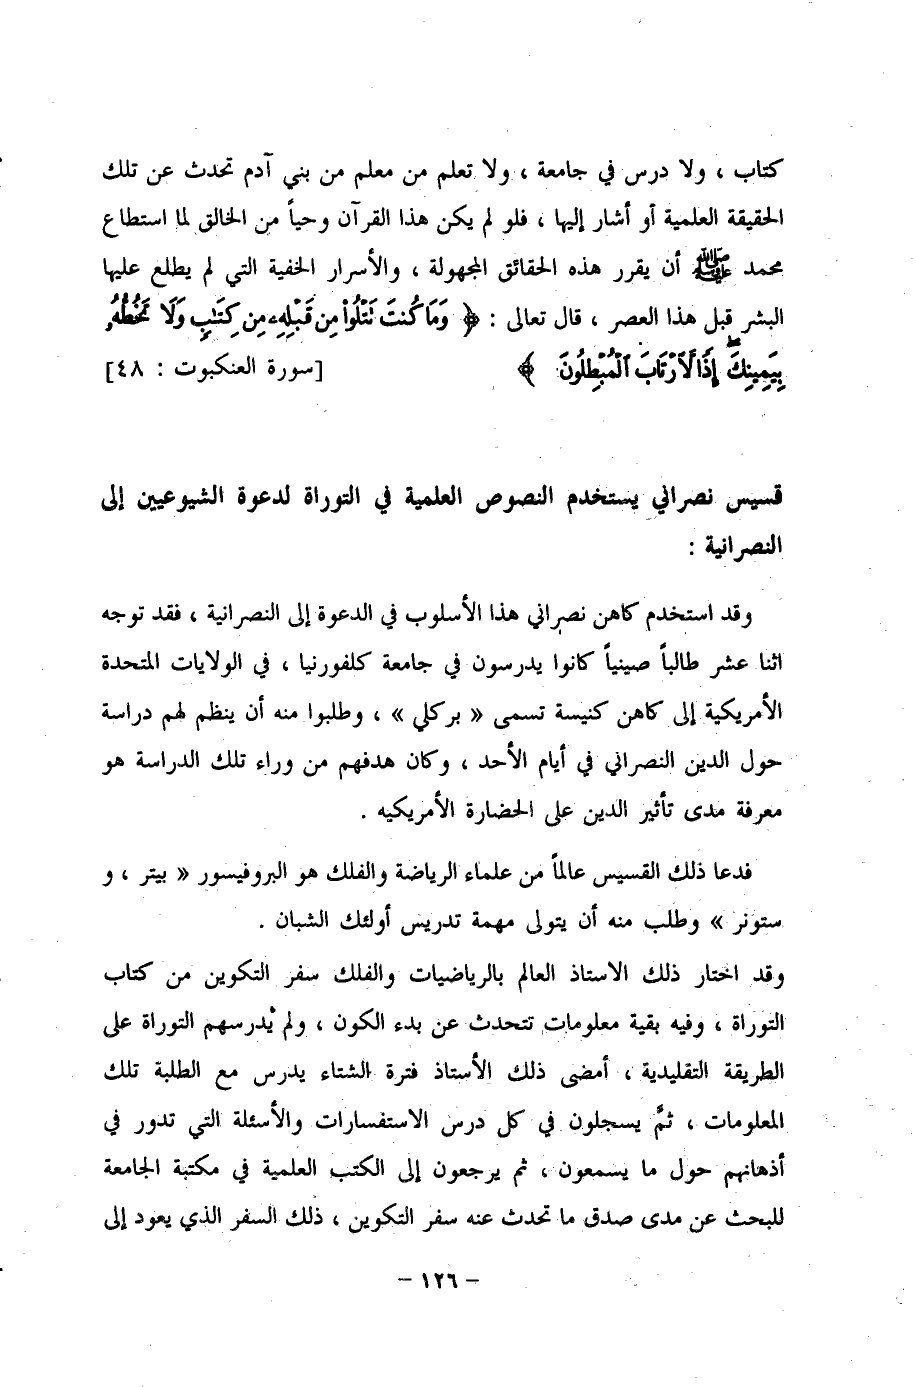 كتاب ، ولا درس في جامعة ، ولا تعلم من معلم من بني آدم تحدث عن تلك
الحقيقة العلمية أو أشار إليها ، فلو لم يكن هذا القرآن وحياً من الخالق لما استطاع
محمد ﷺ أن يقرر هذه الحقائق المجهولة ، والأسرار الخفية التي لم يطلع عليها
البشر قبل هذا العصر ، قال تعالى : ﴿ وَمَا كُنتَ تَتْلُوا۟ مِن قَبْلِهِۦ مِن كِتَٰبٍ وَلَا تَخُطُّهُۥ
بِيَمِينِكَ ۖ إِذًا لَّٱرْتَابَ ٱلْمُبْطِلُونَ ﴾ [سورة العنكبوت : ٤٨]
قسيس نصراني يستخدم النصوص العلمية في التوراة لدعوة الشيوعيين إلى
النصرانية :
وقد استخدم كاهن نصراني هذا الأسلوب في الدعوة إلى النصرانية ، فقد توجه
اثنا عشر طالباً صينياً كانوا يدرسون في جامعة كلفورنيا ، في الولايات المتحدة
الأمريكية إلى كاهن كنيسة تسمى « بركلي » ، وطلبوا منه أن ينظم لهم دراسة
حول الدين النصراني في أيام الأحد ، وكان هدفهم من وراء تلك الدراسة هو
معرفة مدى تأثير الدين على الحضارة الأمريكيه .
فدعا ذلك القسيس عالماً من علماء الرياضة والفلك هو البروفيسور « بيتر ، و
ستونر » وطلب منه أن يتولى مهمة تدريس أولئك الشبان .
وقد اختار ذلك الاستاذ العالم بالرياضيات والفلك سفر التكوين من كتاب
التوراة ، وفيه بقية معلومات تتحدث عن بدء الكون ، ولم يُدرسهم التوراة على
الطريقة التقليدية ، أمضى ذلك الأستاذ فترة الشتاء يدرس مع الطلبة تلك
المعلومات ، ثمَّ يسجلون في كل درس الاستفسارات والأسئلة التي تدور في
أذهانهم حول ما يسمعون ، ثم يرجعون إلى الكتب العلمية في مكتبة الجامعة
للبحث عن مدى صدق ما تحدث عنه سفر التكوين ، ذلك السفر الذي يعود إلى
- ١٢٦ -